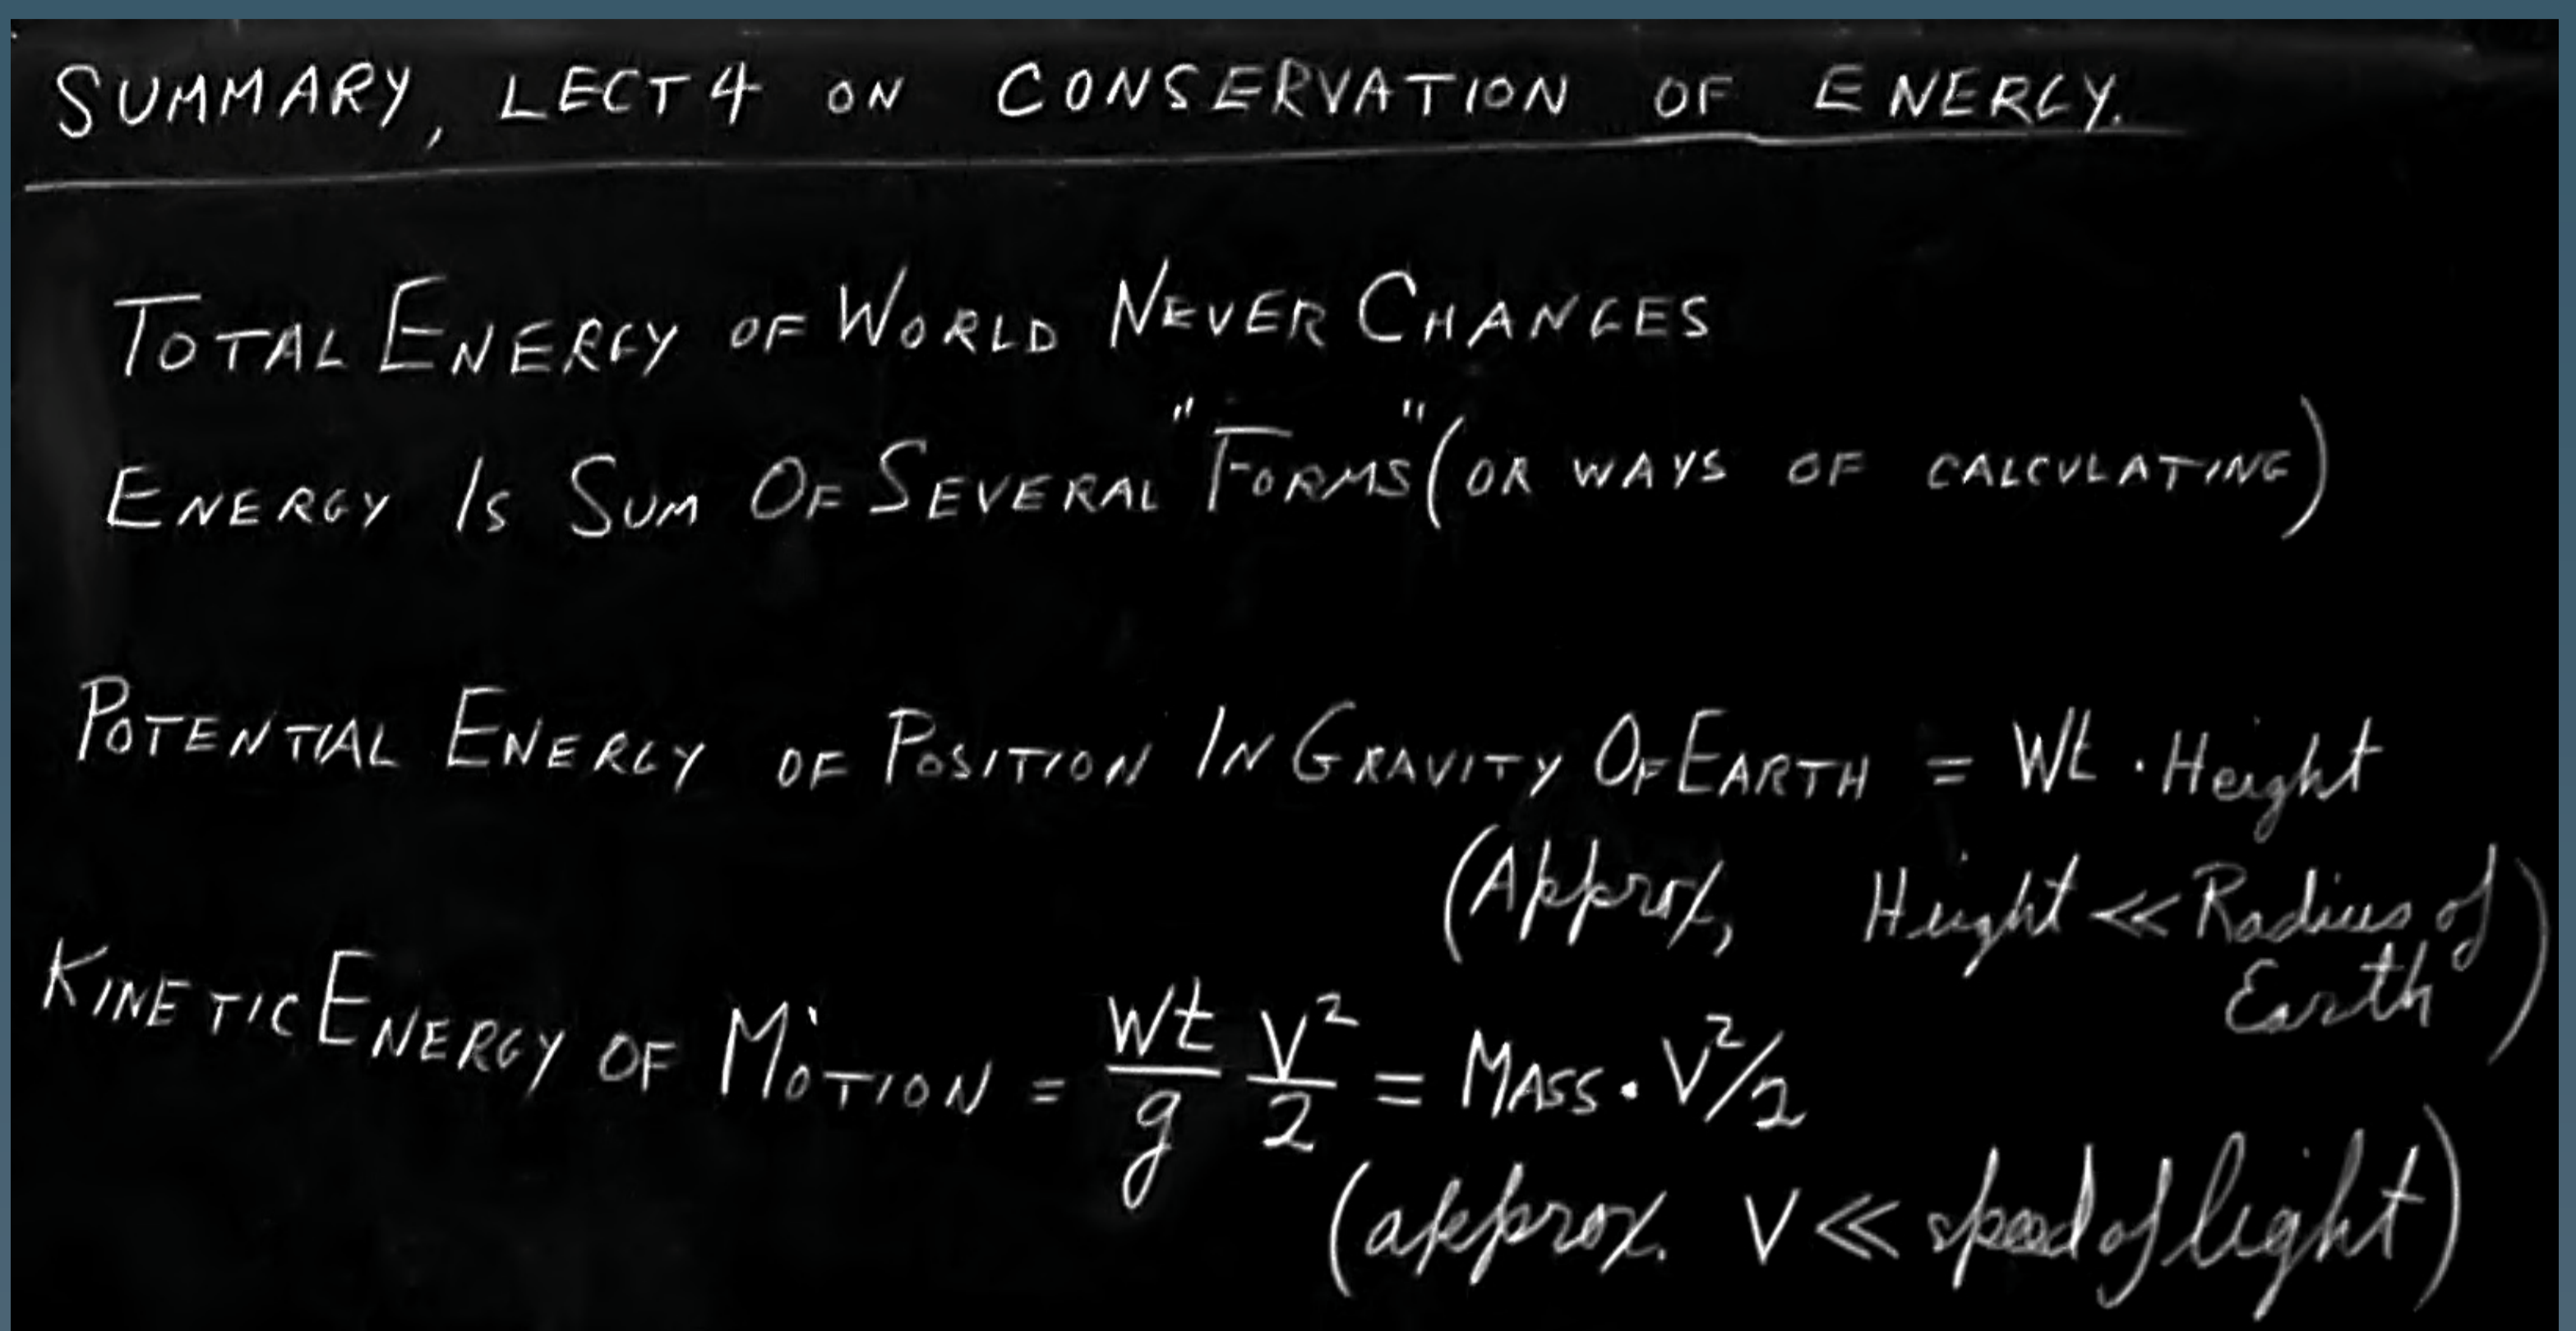 SUMMARY, LECT 4 ON CONSERVATION OF ENERGY.
TOTAL ENERGY OF WORLD NEVER CHANGES
ENERGY IS SUM OF SEVERAL "FORMS" (OR WAYS OF CALCULATING)
POTENTIAL ENERGY OF POSITION IN GRAVITY OF EARTH = Wt · Height
(Approx, Height << Radius of
Earth)
KINETIC ENERGY OF MOTION = Wt/g V²/2 = MASS · V²/2
(approx. V << speed of light)